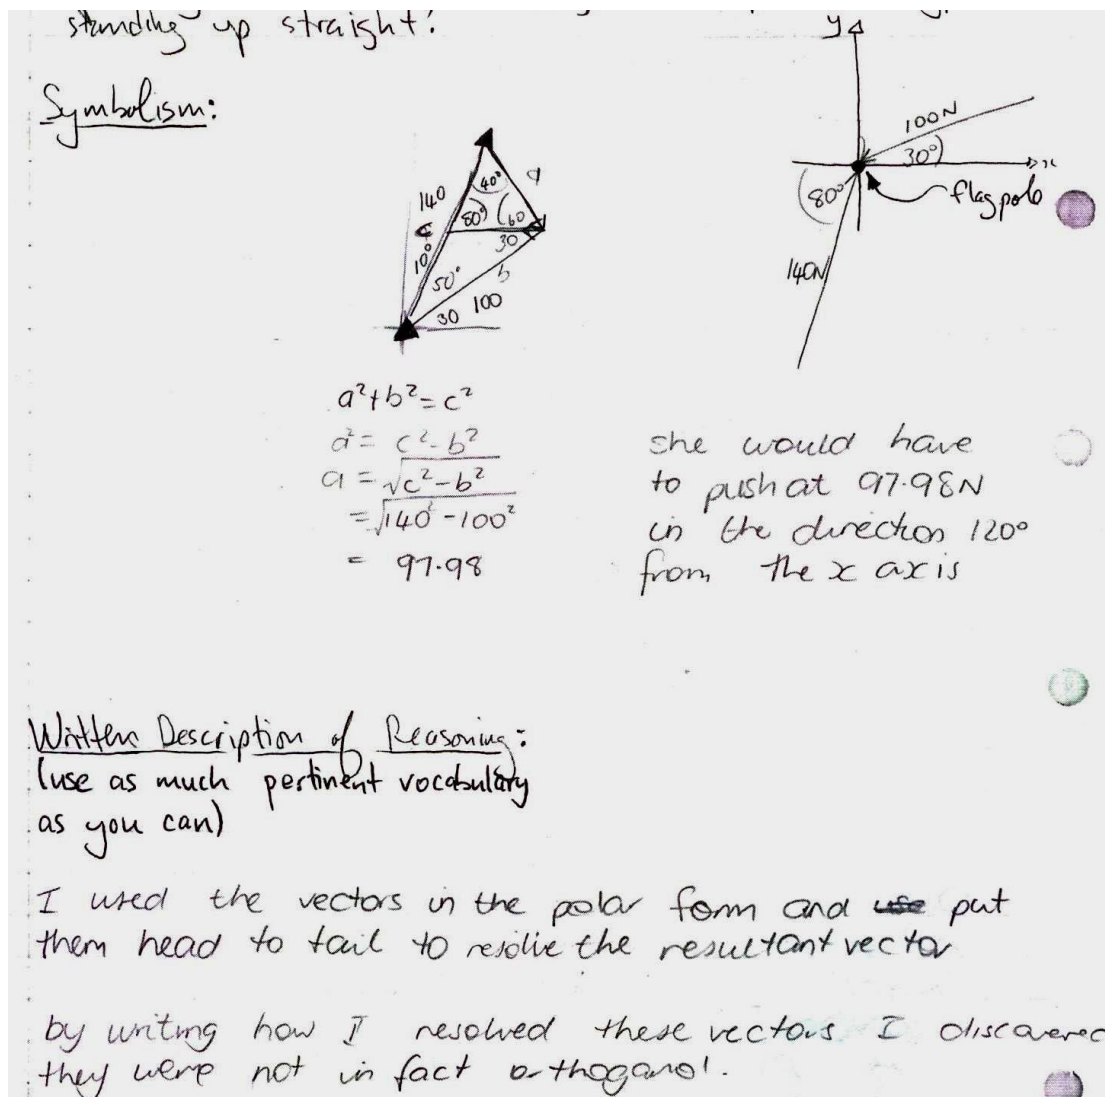 standing up straight?
Symbolism:
y
100N
30°
x
80°
flagpole
140N
140
40°
a
80°
60
c
30
10°
50°
b
30 100
a²+b²=c²
a²= c²-b²
a = √c²-b²
= √140²-100²
= 97.98
she would have
to push at 97.98N
in the direction 120°
from the x axis
Written Description of Reasoning:
(use as much pertinent vocabulary
as you can)
I used the vectors in the polar form and use put
them head to tail to resolve the resultant vector
by writing how I resolved these vectors I discovered
they were not in fact orthoganol.